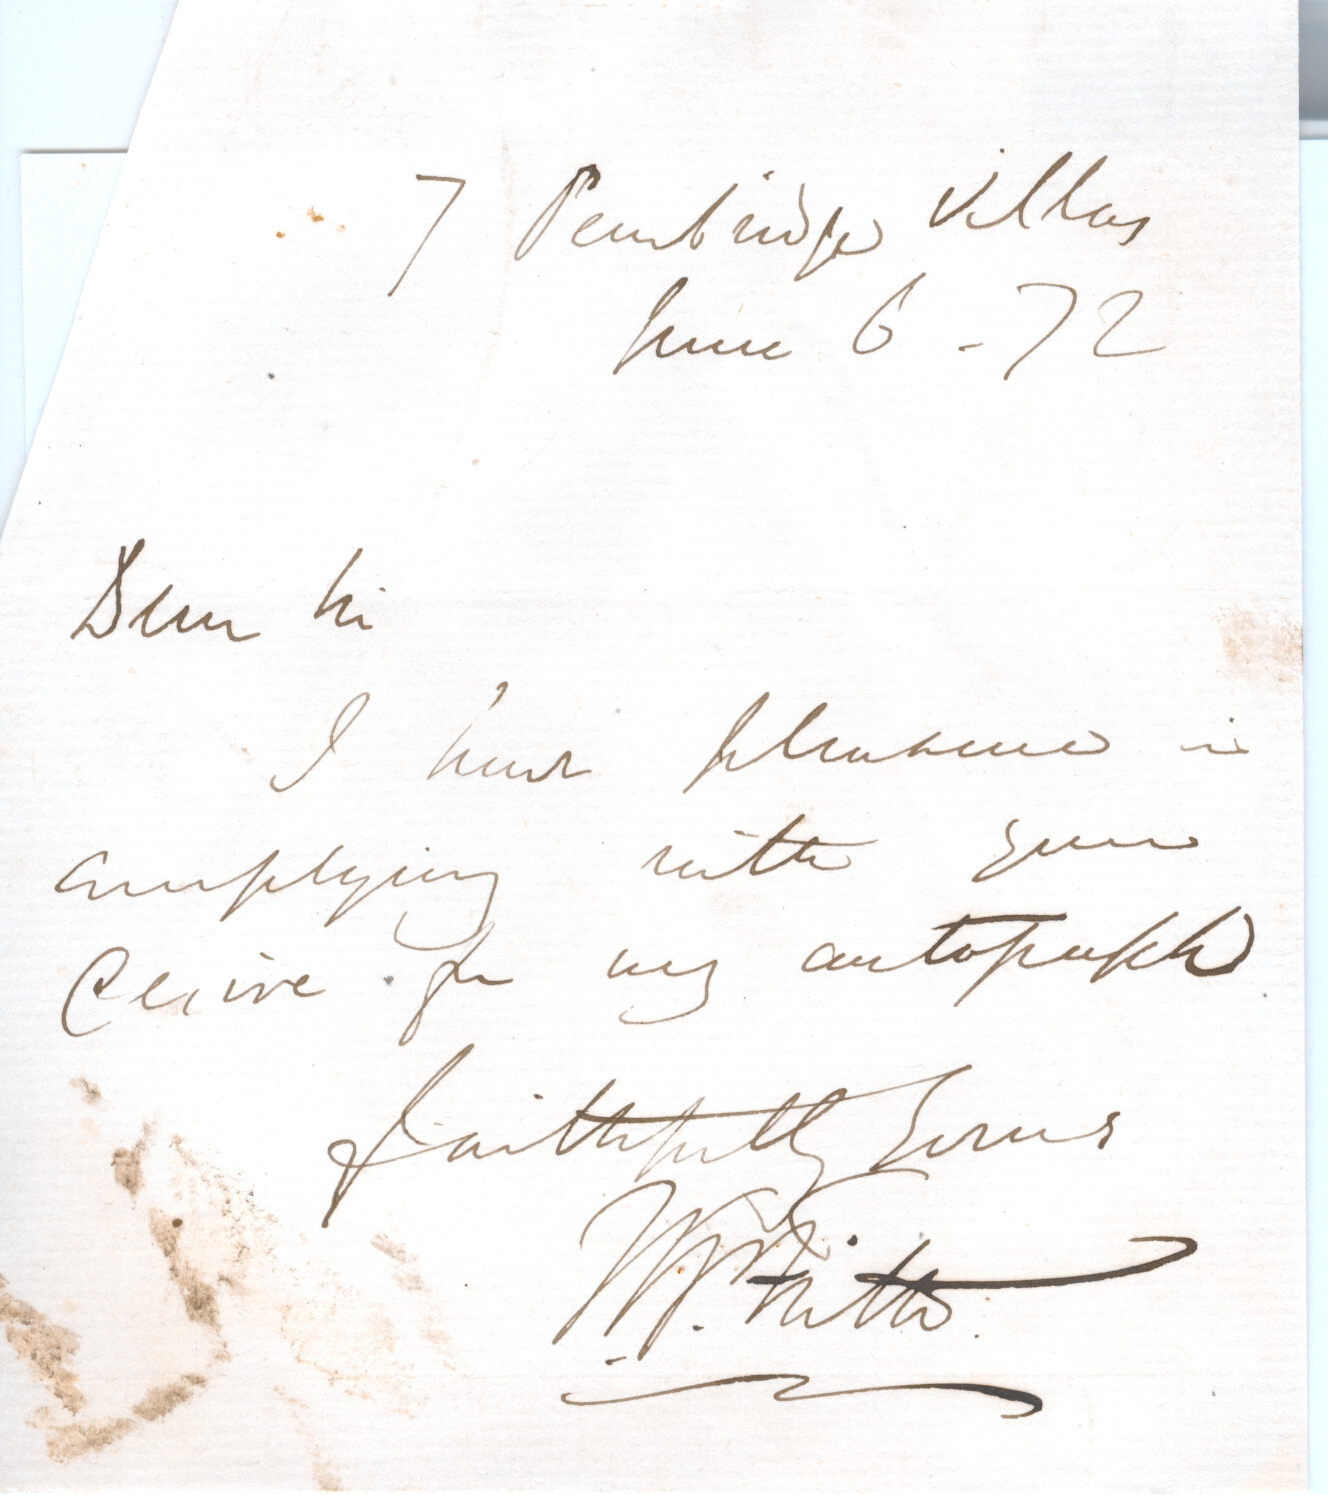 7 Pembridge Villas
June 6 - 72
Dear Sir
I have pleasure in
complying with your
desire for my autograph
Faithfully Yours
W. P. Frith